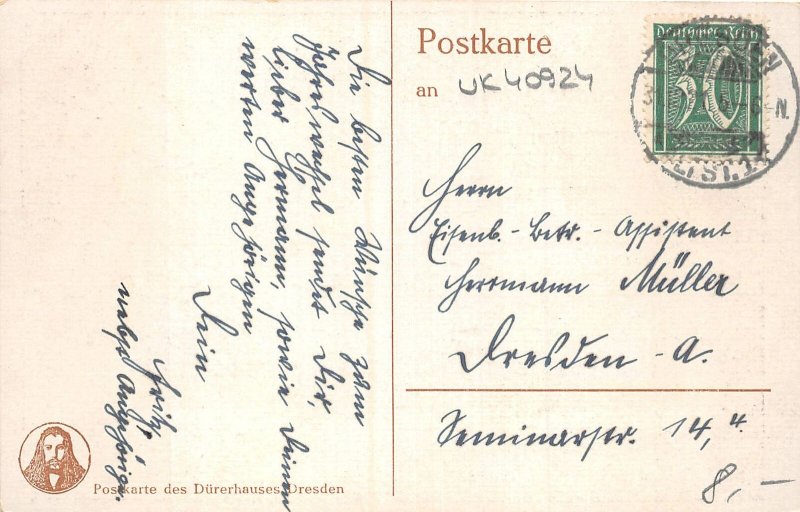 Die besten Wünsche zum
Jahreswechsel sendet Dir,
lieber Hermann, sowie Deinen
werten Angehörigen
Dein
Fritz
nebst Angehörigen.
Postkarte
an
UK40924
Deutsches Reich
50
DRESDEN
ALTST. 1
N.
Herrn
Eisenb. - Betr. - Assistent
Herrmann Müller
Dresden - A.
Seminarstr. 14, 4.
8,-
Postkarte des Dürerhauses Dresden